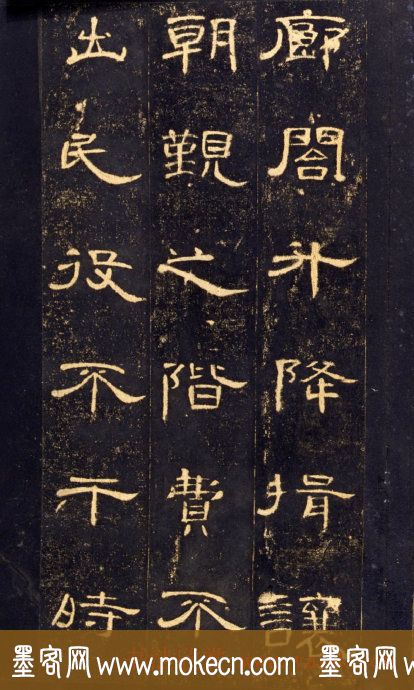 廊閤升降揖讓
朝覲之階費不
出民役不干時
墨客网 www.mokecn.com 墨客网 w